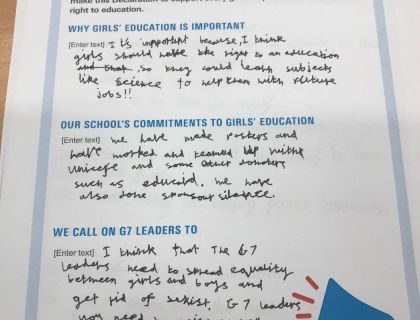 make this Declaration to support every g
right to education.
WHY GIRLS' EDUCATION IS IMPORTANT
[Enter text] I It's important because, I think
girls should have the right to an education
and that so they could learn subjects
like science to help them with future
jobs!!
OUR SCHOOL'S COMMITMENTS TO GIRLS' EDUCATION
[Enter text] we have made posters and
have worked and teamed up with
Unicefe and some other donaters
such as educaid. we have
also done sponsor silence.
WE CALL ON G7 LEADERS TO
[Enter text] I think that The G7
leaders need to spread equality
between girls and boys and
get rid of sexist. G7 leaders
you need